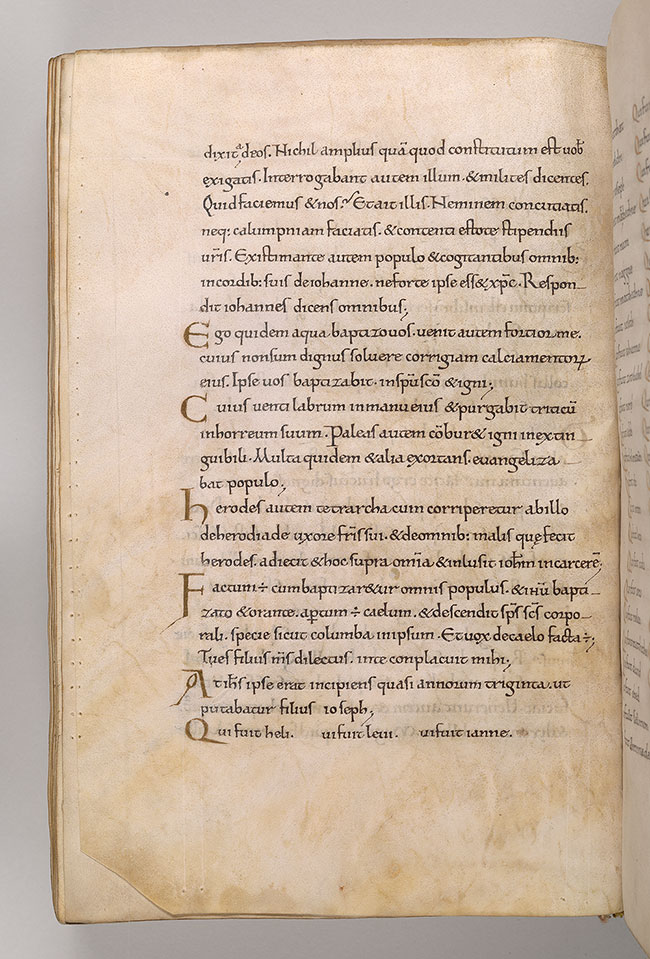 dixit ad eos. Nichil amplius quā quod constitutum est uob
exigatis. Interrogabant autem illum. & milites dicentes.
Quid faciemus & nos. Et ait illis. Neminem concutiatis.
neq: calumpniam faciatis. & contenti estote stipendiis
uris. Existimante autem populo & cogitantibus omnib:
in cordib: suis de iohanne. ne forte ipse ess& xpc. Respon-
dit iohannes dicens omnibus;
Ego quidem aqua baptizo uos. venit autem fortior me.
cuius non sum dignus soluere corrigiam calciamentorꝝ
eius. Ipse uos baptizabit. in spu sco & igni;
Cuius ventilabrum in manu eius & purgabit triticū
in horreum suum. Paleas autem cōbur& igni inextin
guibili. Multa quidem & alia exortans. euangeliza
bat populo;
herodes autem tetrarcha cum corriperetur ab illo
de herodiade uxore fris sui. & de omnib: malis quę fecit
herodes. adiecit & hoc supra omīa & inlusit iohm in carcerē;
Factum ÷ cum baptizar&ur omnis populus. & ihu bapti
zato & orante. aptum ÷ caelum. & descendit sps scs corpo-
rali. specie sicut columba in ipsum. Et uox de caelo facta ÷;
Tu es filius ms dilectus. in te conplacuit mihi;
At ihs ipse erat incipiens quasi annorum triginta. ut
putabatur filius ioseph;
Qui fuit heli. ui fuit leui. ui fuit ianne.